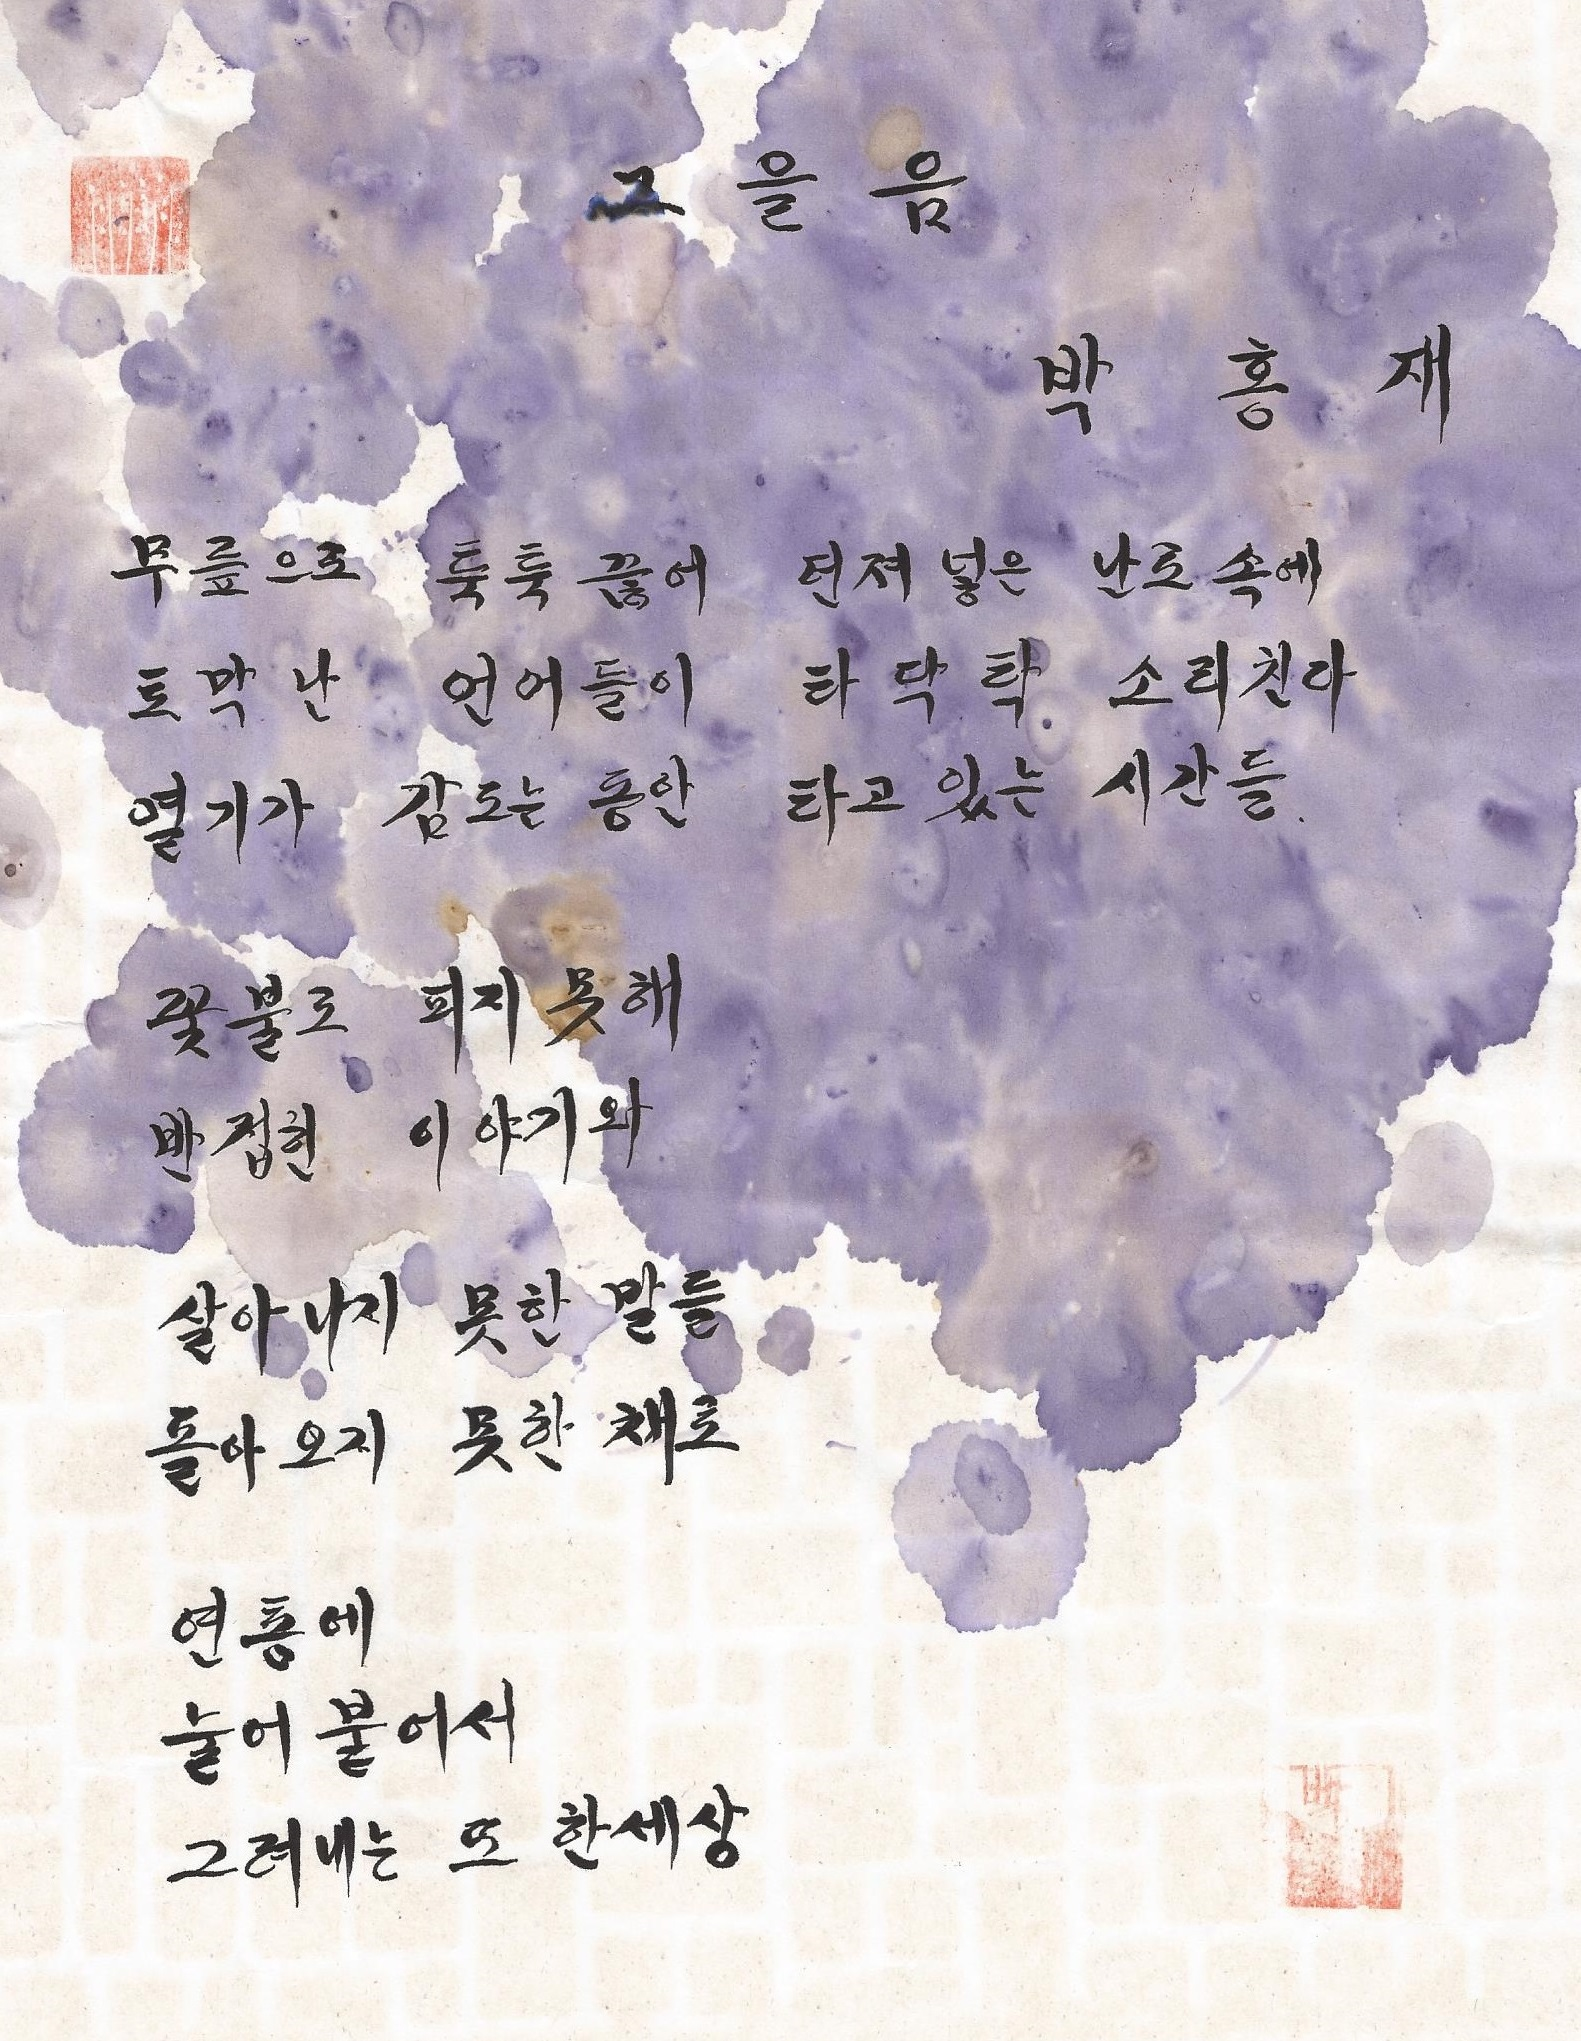 그을음
박홍재
무릎으로 툭툭 끊어 던져 넣은 난로 속에
토막 난 언어들이 타닥탁 소리친다
열기가 감도는 동안 타고 있는 시간들.
꽃불로 피지 못해
반 접힌 이야기와
살아나지 못한 말들
돌아오지 못한 채로
연통에
눌어붙어서
그려내는 또 한세상